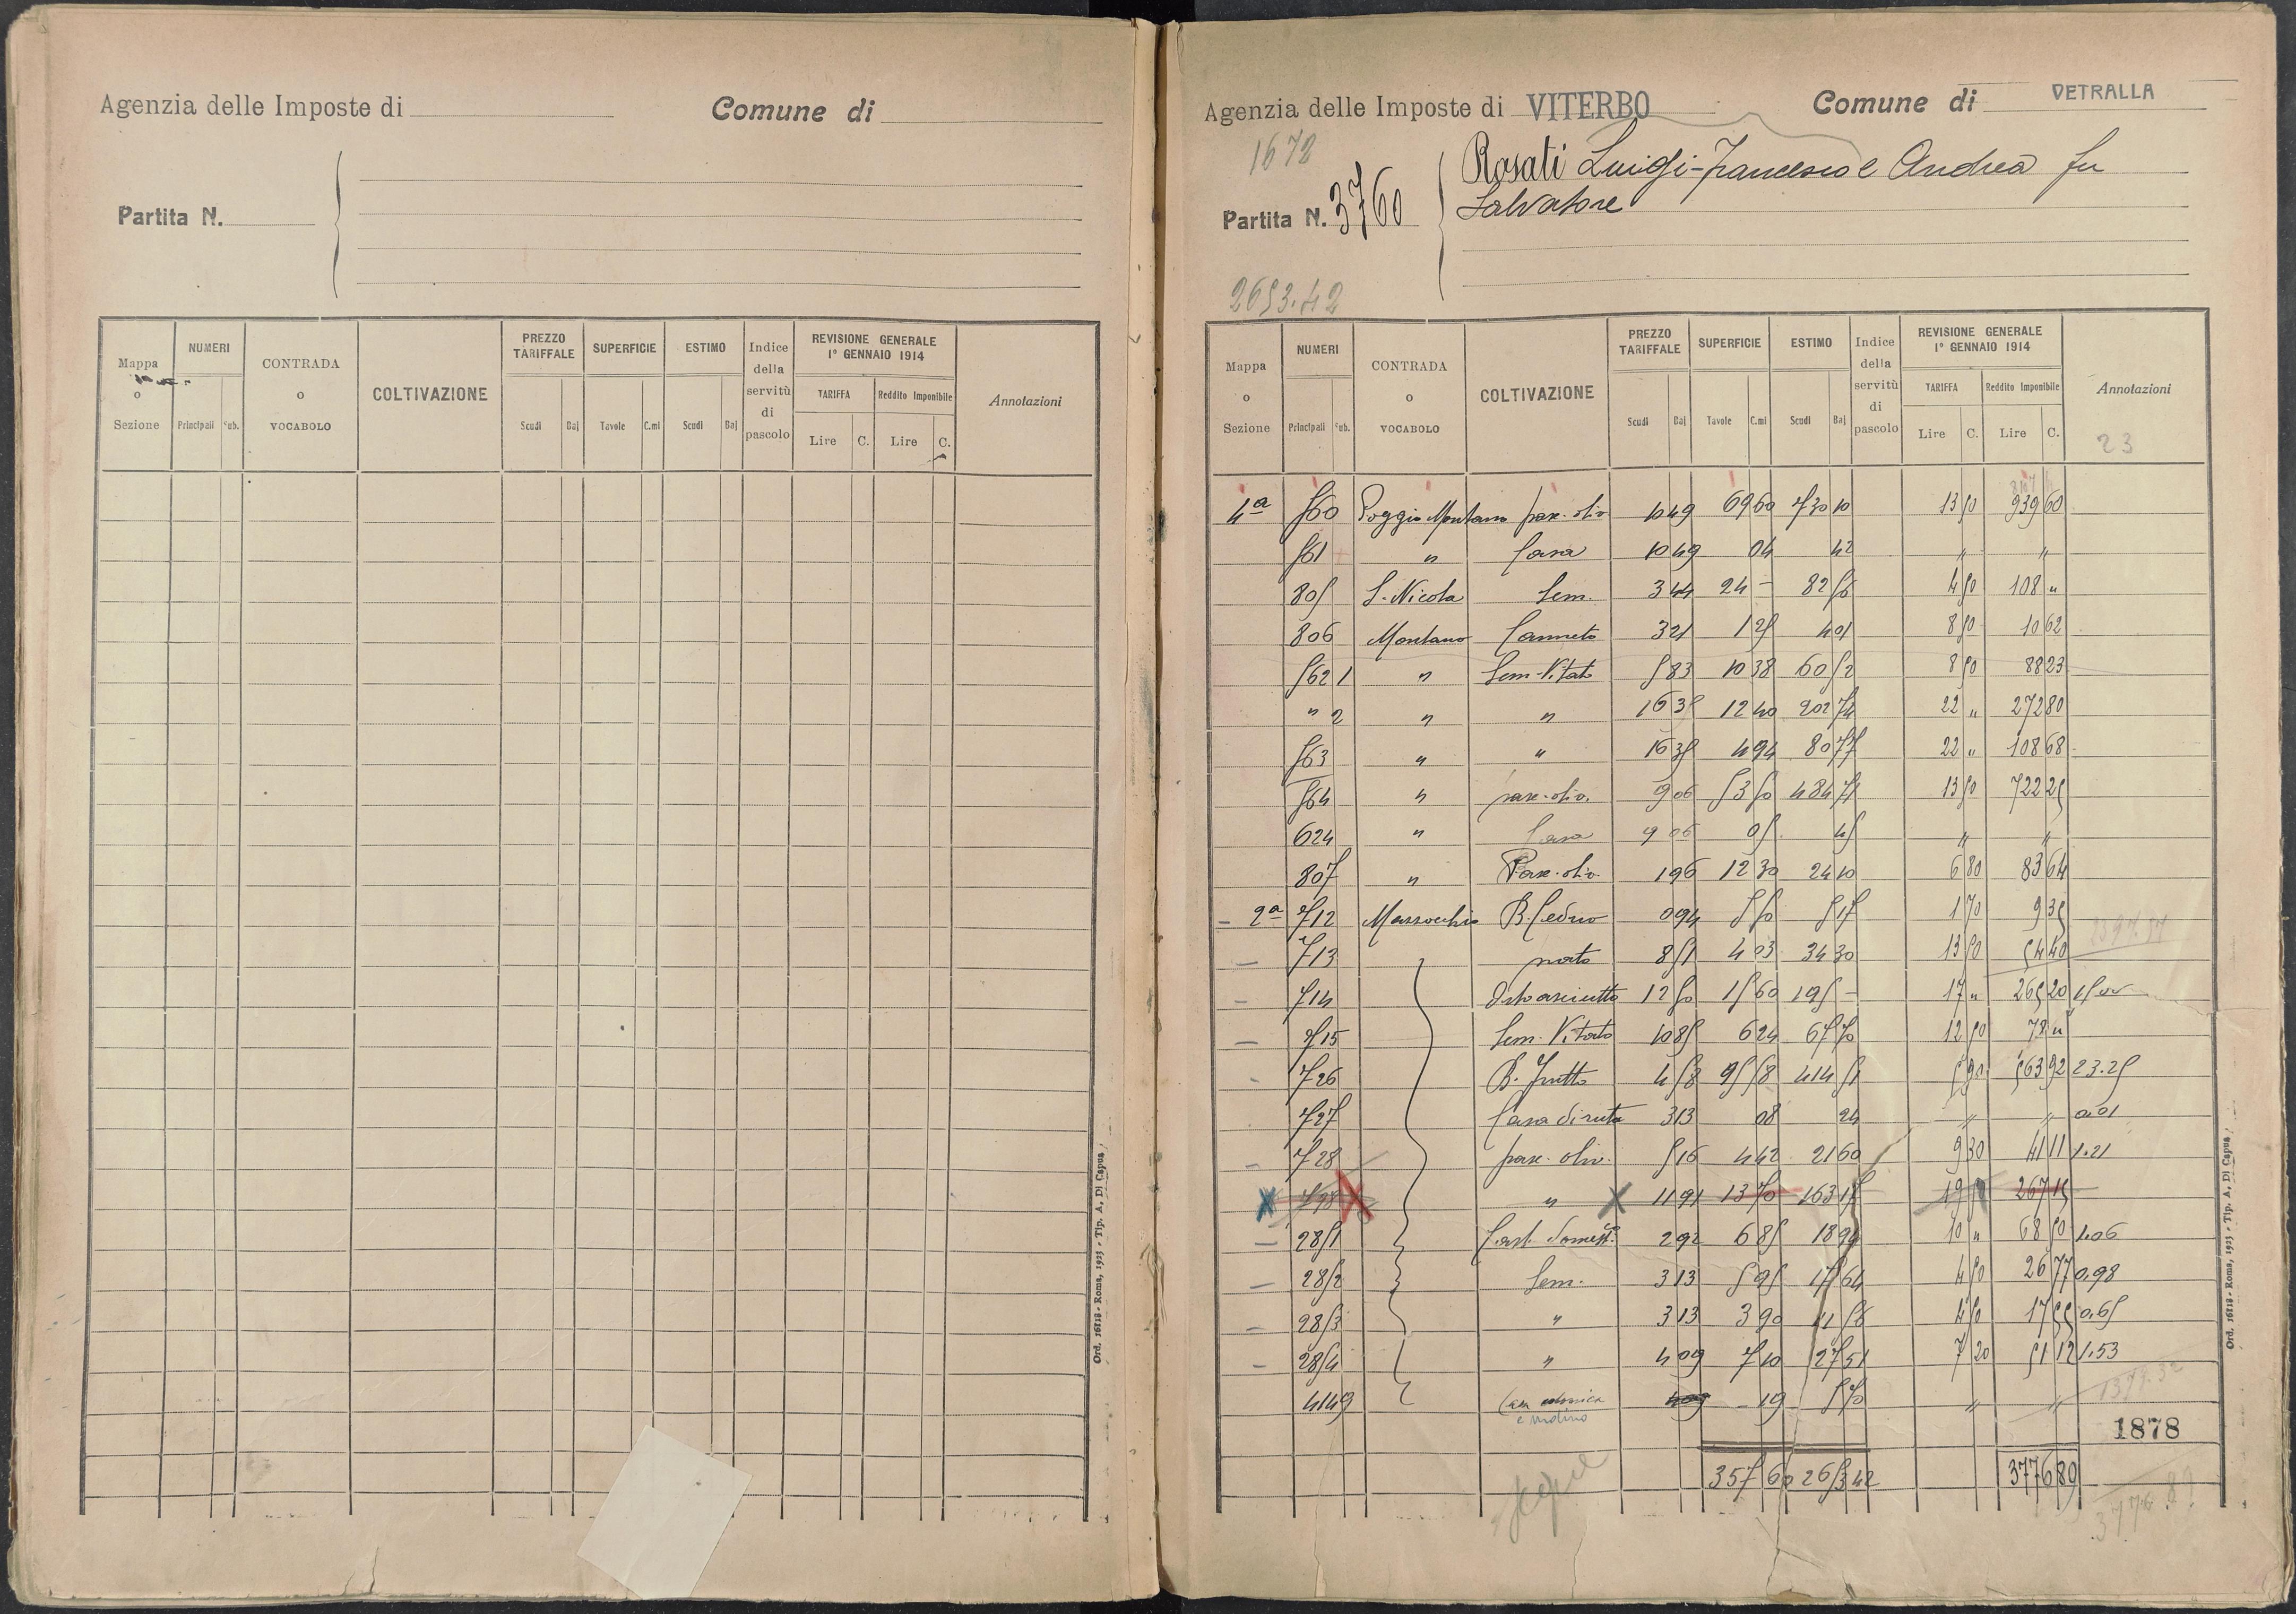 Agenzia delle Imposte di
Comune di
Partita N.
Mappa o Sezione
NUMERI
Principali Sub.
CONTRADA o VOCABOLO
COLTIVAZIONE
PREZZO TARIFFALE
Scudi Baj
SUPERFICIE
Tavole C.mi
ESTIMO
Scudi Baj
Indice della servitù di pascolo
REVISIONE GENERALE 1° GENNAIO 1914
TARIFFA
Lire C.
Reddito Imponibile
Lire C.
Annotazioni
Ord. 16118 - Roma, 1923 - Tip. A. Di Capua
Agenzia delle Imposte di VITERBO
Comune di VETRALLA
1672
Partita N. 3760
Rosati Luigi-Francesco e Andrea fu
Salvatore
2653.42
Mappa o Sezione
NUMERI
Principali Sub.
CONTRADA o VOCABOLO
COLTIVAZIONE
PREZZO TARIFFALE
Scudi Baj
SUPERFICIE
Tavole C.mi
ESTIMO
Scudi Baj
Indice della servitù di pascolo
REVISIONE GENERALE 1° GENNAIO 1914
TARIFFA
Lire C.
Reddito Imponibile
Lire C.
Annotazioni
23
4ª 560 Poggio Montano pasc. oliv 10 49 69 60 730 10 13 50 939 60
561 " Casa 10 49 04 42 " "
805 S. Nicola Sem. 3 44 24 - 82 56 4 50 108 "
806 Montano Canneto 3 21 1 25 4 01 8 50 10 62
562 1 " Sem-Vitato 5 83 10 38 60 52 8 50 88 23
" 2 " " 16 35 12 40 202 74 22 " 272 80
563 " " 16 35 4 94 80 77 22 " 108 68
564 " pasc-oliv. 9 06 53 50 484 71 13 50 722 25
624 " Casa 9 06 05 45 " "
807 " Pasc-oliv 1 96 12 30 24 10 6 80 83 64
2ª 712 Mazzocchio B. Ceduo 0 94 5 50 5 17 1 70 9 35
713 8 51 4 03 34 30 13 50 54 40
714 12 50 15 60 195 - 17 " 265 20
715 Sem. Vitato 10 85 6 24 67 70 12 50 78 "
726 B. Frutto 4 58 95 58 414 51 5 90 563 92 23.25
727 Casa diruta 3 13 08 24 " " 0.01
728 pasc. oliv. 5 16 4 42 21 60 9 30 41 11 1.21
798 " 11 91 13 70 163 17 19 50 267 15
2851 Cast. domest. 2 92 6 85 18 94 10 " 68 50 1.06
2852 Sem. 3 13 5 95 17 64 4 50 26 77 0.98
2853 " 3 13 3 90 11 58 4 50 17 55 0.65
2854 " 4 09 7 10 27 51 7 20 51 12 1.53
4149 Casa colonica e molino 4 09 19 5 70 " "
1377.32
1878
357 60 2653 42 3776 89
segue
3776.89
Ord. 16118 - Roma, 1923 - Tip. A. Di Capua